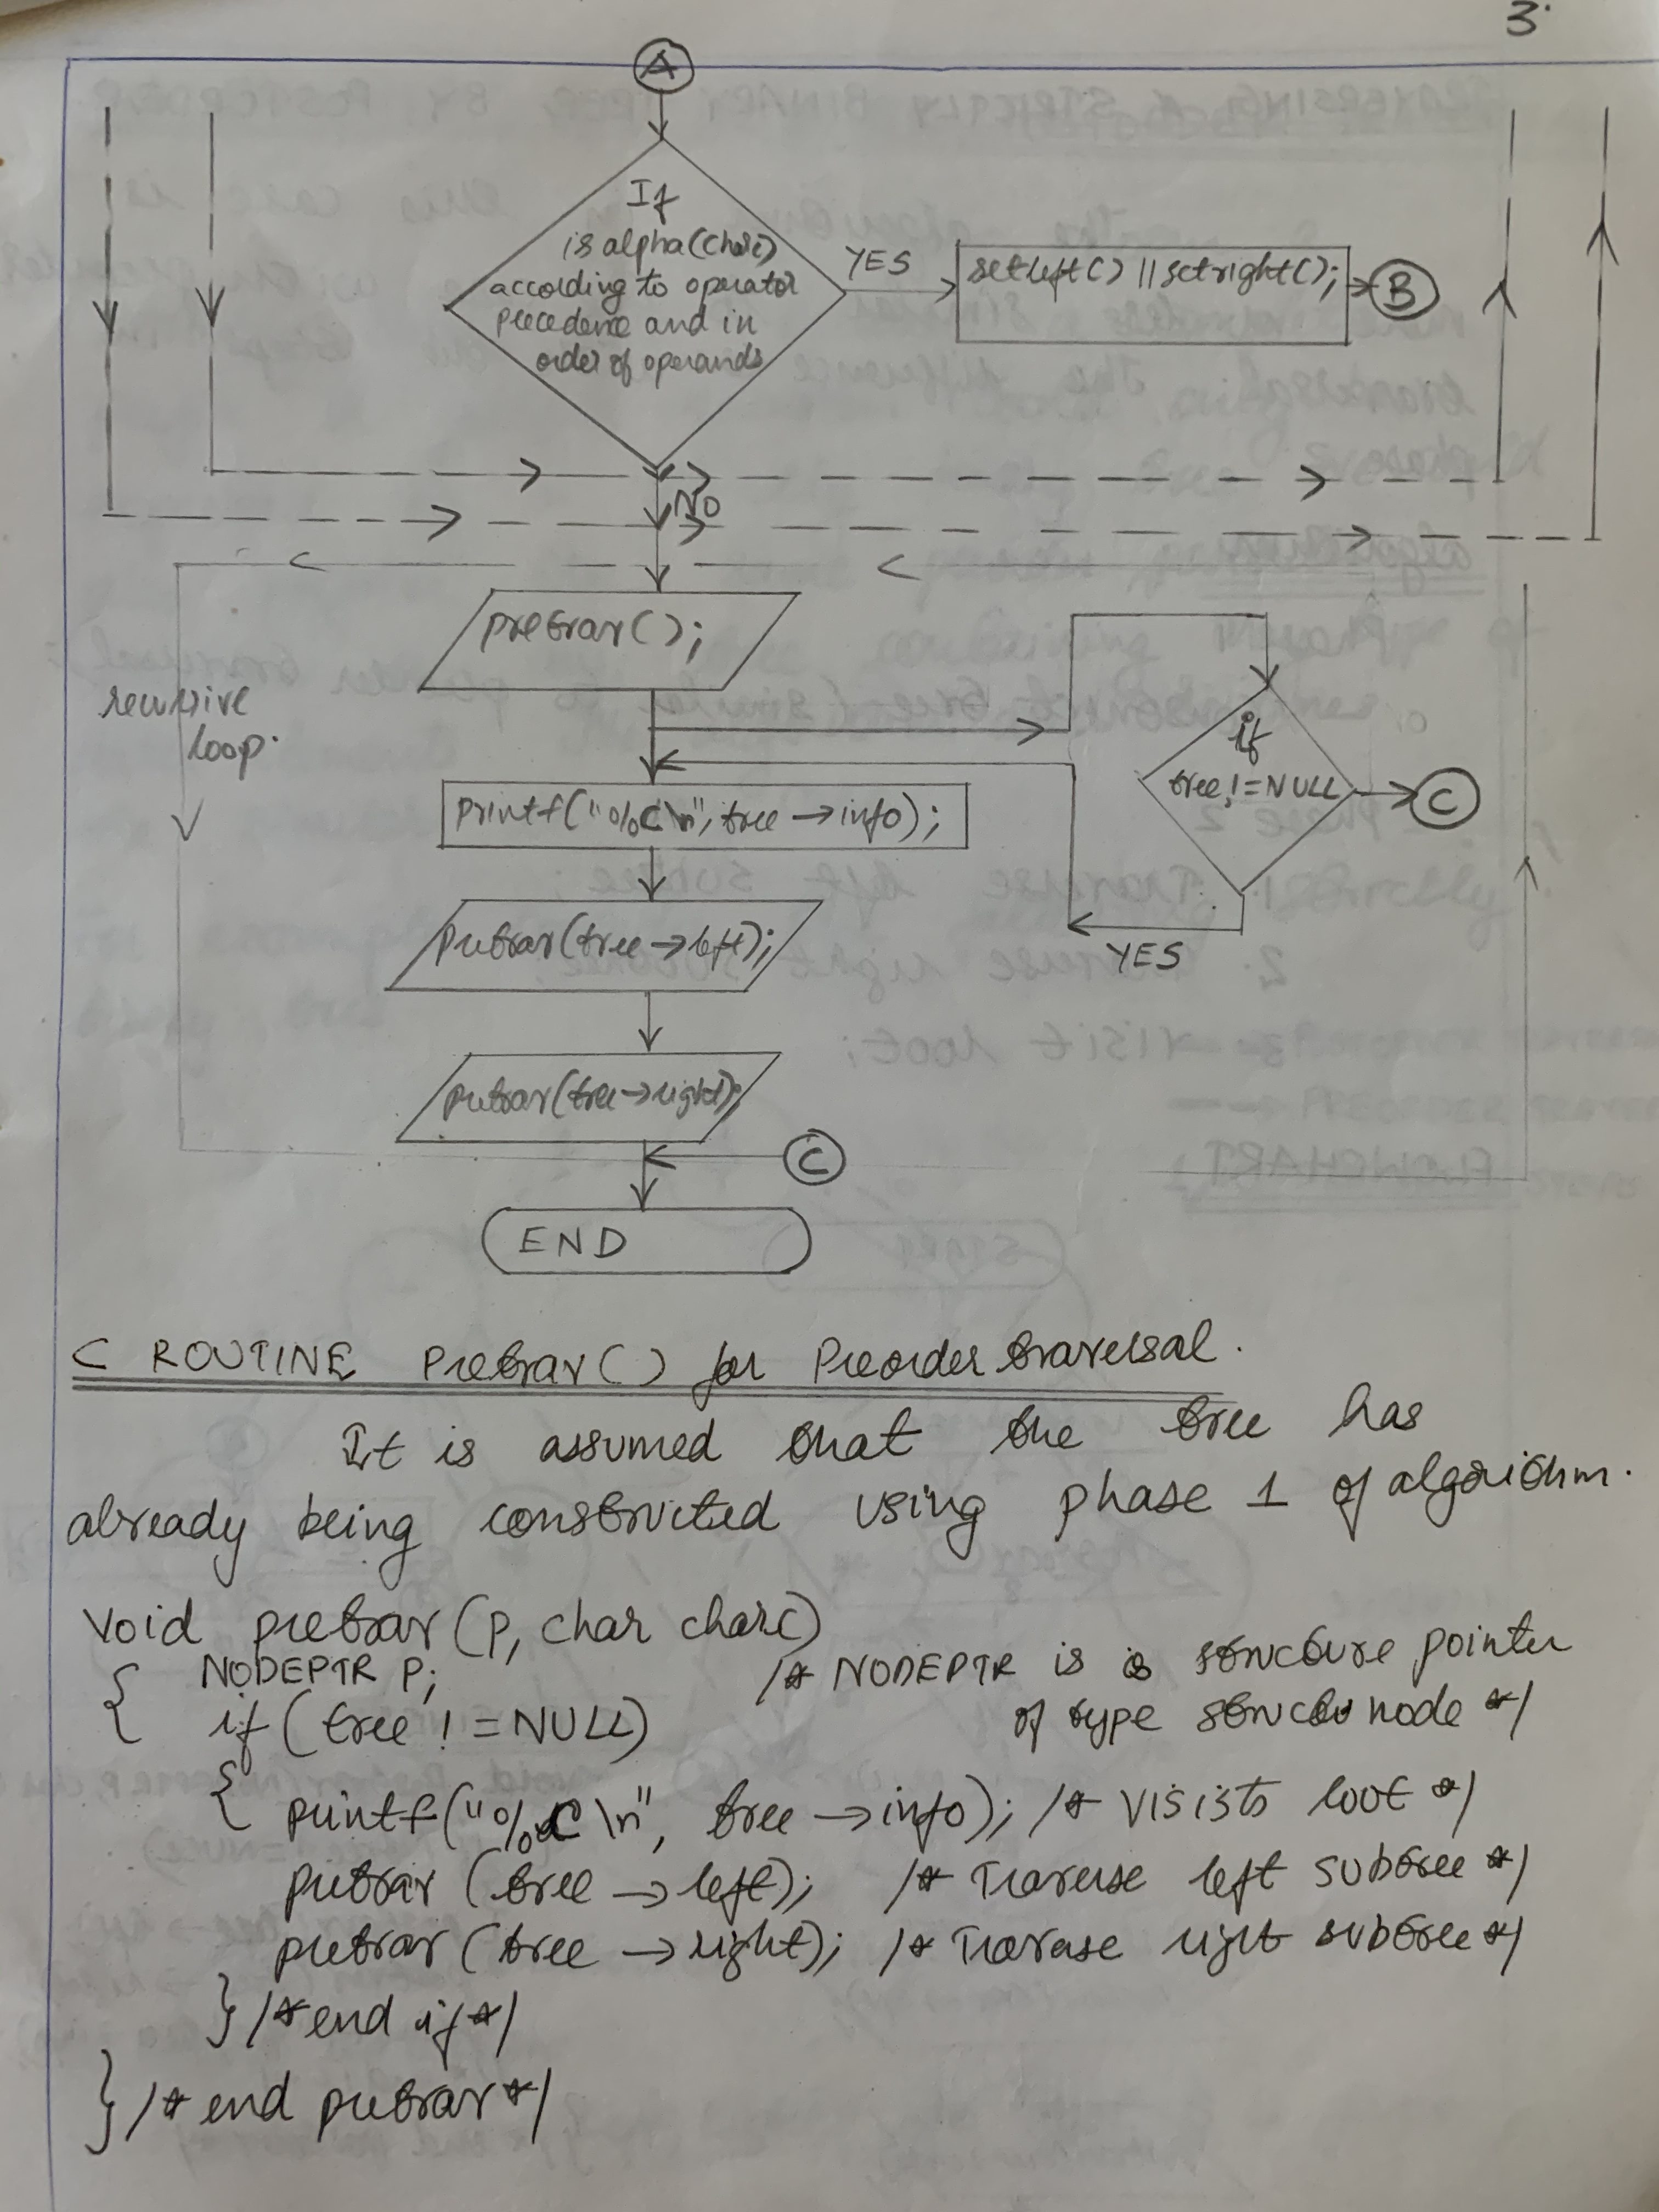 3.
A
If
isalpha(charc)
according to operator
precedence and in
order of operands
YES
setleft() || setright();
B
NO
pretrav();
recursive
loop.
if
tree != NULL
C
printf("%c\n", tree → info);
YES
pretrav(tree → left);
pretrav(tree → right);
C
END
C ROUTINE Pretrav() for Preorder traversal.
It is assumed that the tree has
already being constructed using phase 1 of algorithm.
void pretrav(p, char charc)
{ NODEPTR p; /* NODEPTR is is structure pointer
if (tree != NULL) of type struct node */
{ printf("%c\n", tree → info); /* visists root */
pretrav (tree → left); /* Traverse left subtree */
pretrav (tree → right); /* Travase right subtree */
} /* end if */
} /* end pretrav */